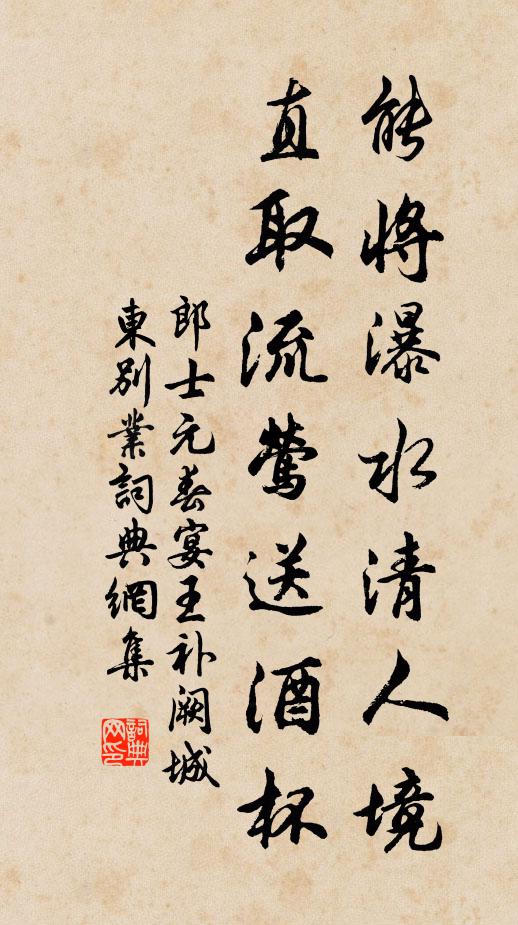 能將瀑水清人境
直取流莺送酒杯
郎士元春宴王补阙城
東别業詞典網集
詞典网印